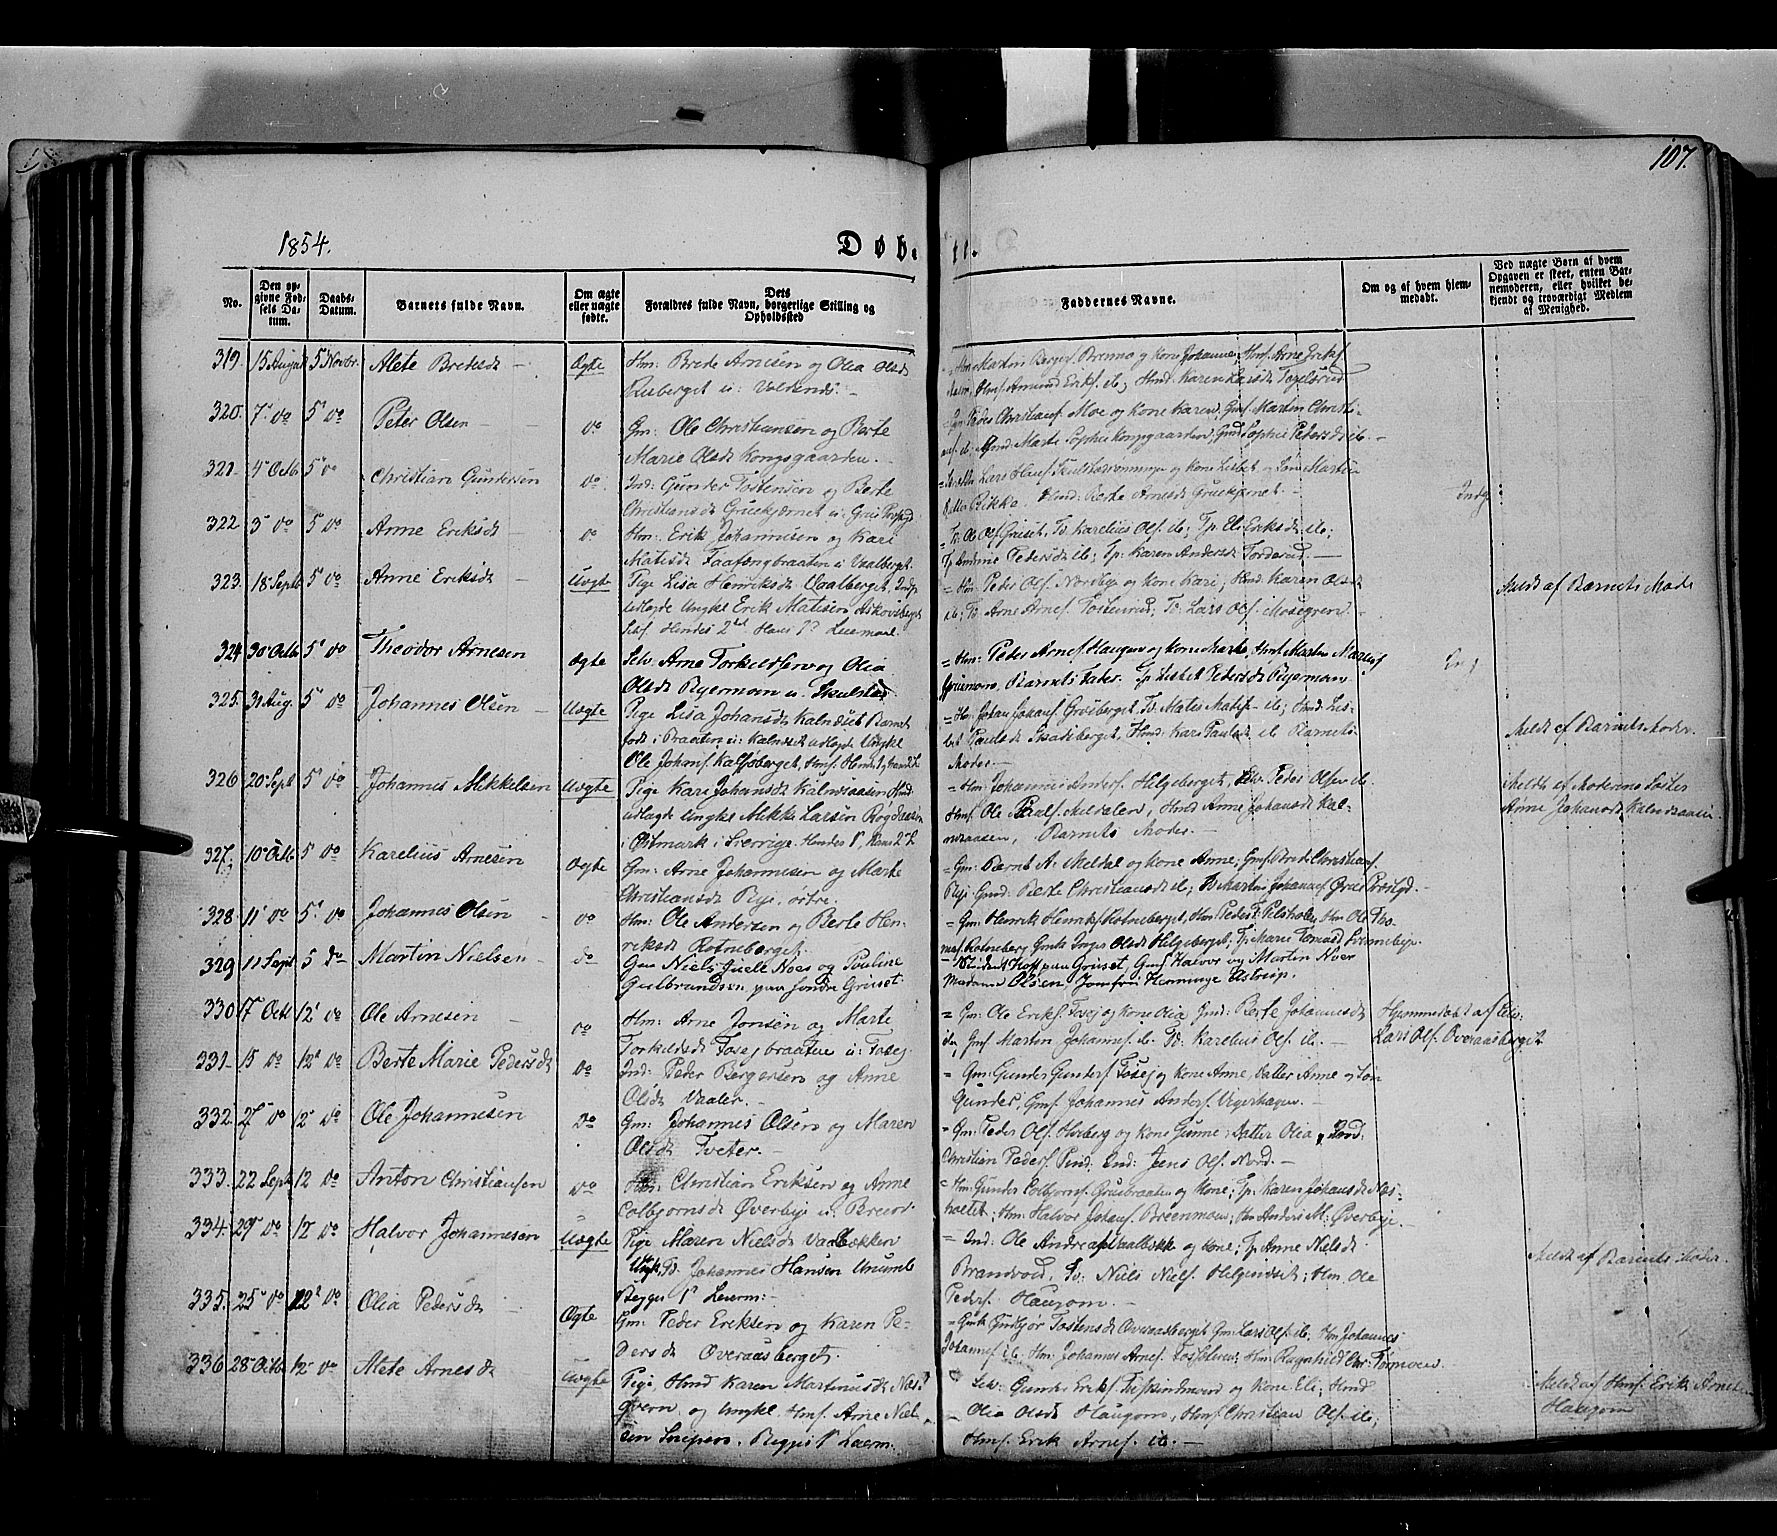 107.
1854.
Døb- te.
No.
Den opgivne Fødsels Datum.
Daabs-Datum.
Barnets fulde Navn.
Om ægte eller uægte født.
Dets Forældres fulde Navn, borgerlige Stilling og Opholdssted
Faddernes Navne.
Om og af hvem hjemmedøbt.
Ved uægte Børn af hvem Opgaven er skeet, enten Barnemoderen, eller hvilket bekjendt og troværdigt Medlem af Menighed.
319. 15 August 5 Novbr. Alete Bredsdt Ægte Hm: Brede Arnesen og Olia Olsdt
= Hm Martin Berges. Brenno og Kone Johanne; Hmf. Arne Eriks.
Hmf. Amund Eriks. ib; Hmd. Karen
320. 7 do 5 do Peter Olsen do Gm: Ole Christiansen og Berte
Marie Olsdt Kongsgaarden.
= Gm Peder Christians. Moe og Kone Karen; Gmf. Martin Christi-
ans. ib; Gmd Marte Sophie Kongsgaarden, Gmd Sophie Pedersdt ib.
321. 4 Octb 5 do Christian Gundersen do Ind: Gunder Tostensen og Berte
Christiansdt Gruekjærnet u: Grue Præstgd
Rikke. Hmd: Berte Arnesdt Gruekjærnet.
322. 3 do 5 do Anne Eriksdt do Hm: Erik Johannesen og Kari
Matisdt Faafengbraaten u: Vaalberget.
= Tv Ole Ols. Griset, Tv. Karelius Ols. ib; Tp. Eli Eriksdt ib;
Pedersdt ib; Tp: Karen Andersdt Torderud.
323. 18 Septb 5 do Anne Eriksdt Uægte Pige Lisa Henriksdt Vaalberget. Indg.
udlagde Ungkl Erik Matisen Askosberget
Hendes 2det Hans 1ste Leiermaal.
= Hm: Peder Ols. Nordbye og Kone Kari; Hmd. Karen Olsdt
ib; Tv. Arne Arnes. Tostenrud; Tv: Lars Ols. Mosegren
Meldt af Barnets Moder
324. 30 Octb 5 do Theodor Arnesen Ægte Selv. Arne Torkildsen og Olia
Olsdt Byermoen u. Skulstad.
= Hm: Peder Arnes. Haugen og Kone Marte, Hmf. Martin
Gruemoen, Barnets Fader. Tp Lisbet Pedersdt Byermoen
325. 31 Aug. 5 do Johannes Olsen Uægte Pige Lisa Johansdt Kalneset Barnet
født i Braaten u: Kalneset udlagde Ungkl
Ole Johans.
= Hm: Johan Johans. Grasberget, Tv. Matis Matis. ib; Hmd. Lis-
bet Paulsdt Skasberget, Hmd: Kari Paulsdt ib Barnets
Moder.
Meldt af Barnets Moder.
326 20 Septb 5 do Johannes Mikkelsen Uægte Pige Kari Johansdt Kalnesaasen Hmd.
udlagde Ungkl Mikkel Larsen Bogdaasen
i Østmark i Sverrige. Hendes 1ste, Hans 2 L
= Hm: Johannes Anders. Helgeberget, Peder Olsen ib.
Hmf. Ole Pauls. Meldalen, Hmd Anne Johansdt Kal-
nesaasen, Barnets Moder.
Meldt af Moderens Søster
Anne Johansdt Kalnesaasen
327. 10 Octb 5 do Karelius Arnesen Ægte Gm: Arne Johannesen og Marte
Christiansdt Bye, østre.
= Gm: Bernt A. Meldal og Kone Anne; Gmf. Brede Christians.
Bye; Gmd: Berte Christiansdt ib; Tv Martin Johannes. Grue Præstgd.
328. 11 do 5 do Johannes Olsen do Hm: Ole Andersen og Berte Hen-
riksdt Rotneberget
= Gm: Henrik Henriks. Rotneberget, Hm: Peder T. Hm Ole Tho-
mas. Rotneberg Gmk Inger Olsdt Helgeberget; Tp: Marie
329 11 Septb 5 do Martin Nielsen do Gm Niels Juell Noer og Pauline
Gulbrandsen paa Søndre Griset
= Student Hoff paa Griset, Gmf. Halvor og Martin Noer
Madame Olsen Jomfru Henninge Elstrup.
330 17 Octb 12 do Ole Arnesen do Hm: Arne Jonsen og Marte
Torkildsdt Fosejbraaten u: Fosej
= Gm: Ole Eriks. Fosej og Kone Olia Gmd: Berte Johannesdt
ib; Gmf. Martin Johannes. ib. Tv: Karelius Ols. ib.
Hjemmedøbt af Selv.
Lars Ols. Overaasberget
331. 15 do 12 do Berte Marie Pedersdt do Ind: Peder Bergersen og Anne
Olsdt Vaaler.
= Gm: Gunder Gunders. Fosej og Kone Anne, Datter Anne og Søn
Gunder, Gmf. Johannes Anders. Vegerhagen.
332. 27 do 12 do Ole Johannesen do Gm: Johannes Olsen og Maren
Olsdt Tveter.
= Gm: Peder Ols. Horberg og Kone Gunne; Datter Olia,
Christian Peders. Ind: Jens Ols. Nord.
333. 22 Septb 12 do Anton Christiansen do Hm: Christian Eriksen og Anne
Colbjørnsdt Øverbye u.
= Hm: Gunder Colbjørns. Gruebraaten og Kone; Tp: Karen Johansdt Næs-
Hm: Halvor Johans. Breenmoen, Hm Anders M. Øverbye.
334. 29 do 12 do Halvor Johannesen Uægte Pige Maren Nielsdt Vaalbækken
Ungk. Johannes Hansen
Begges 1ste Leierm:
= Ind: Ole Andreas. Vaalbækk og Kone; Tp: Anne Nielsdt
Brandvold, Tv: Niels Niels. Helgeneset; Hm. Ole
Peders. Haugom.
Meldt af Barnets Moder.
335. 25 do 12 do Olia Pedersdt Ægte Gm: Peder Eriksen og Karen Pe-
dersdt Overaasberget.
= Gmk Gudbjør Tostensdt Overaasberget Gm: Lars Ols. ib, Hm Johannes
Johannes. ib. Hm: Johannes Arnes. Hm: Tørmoen
336 28 Octb 12 do Alete Arnesdt Uægte Pige, Hmd Karen Martinusdt Næs-
og Ungkl. Hmf. Arne Niel-
sen Begges 1ste Leierm.
Selv: Gunder Eriks. og Kone Eli; Hmd
Olia Olsdt Haugom, Hmf. Christian Ols. ib;
Hmf. Erik Arnes. ib.
Meldt af Hmf. Erik Arnesen
Haugom